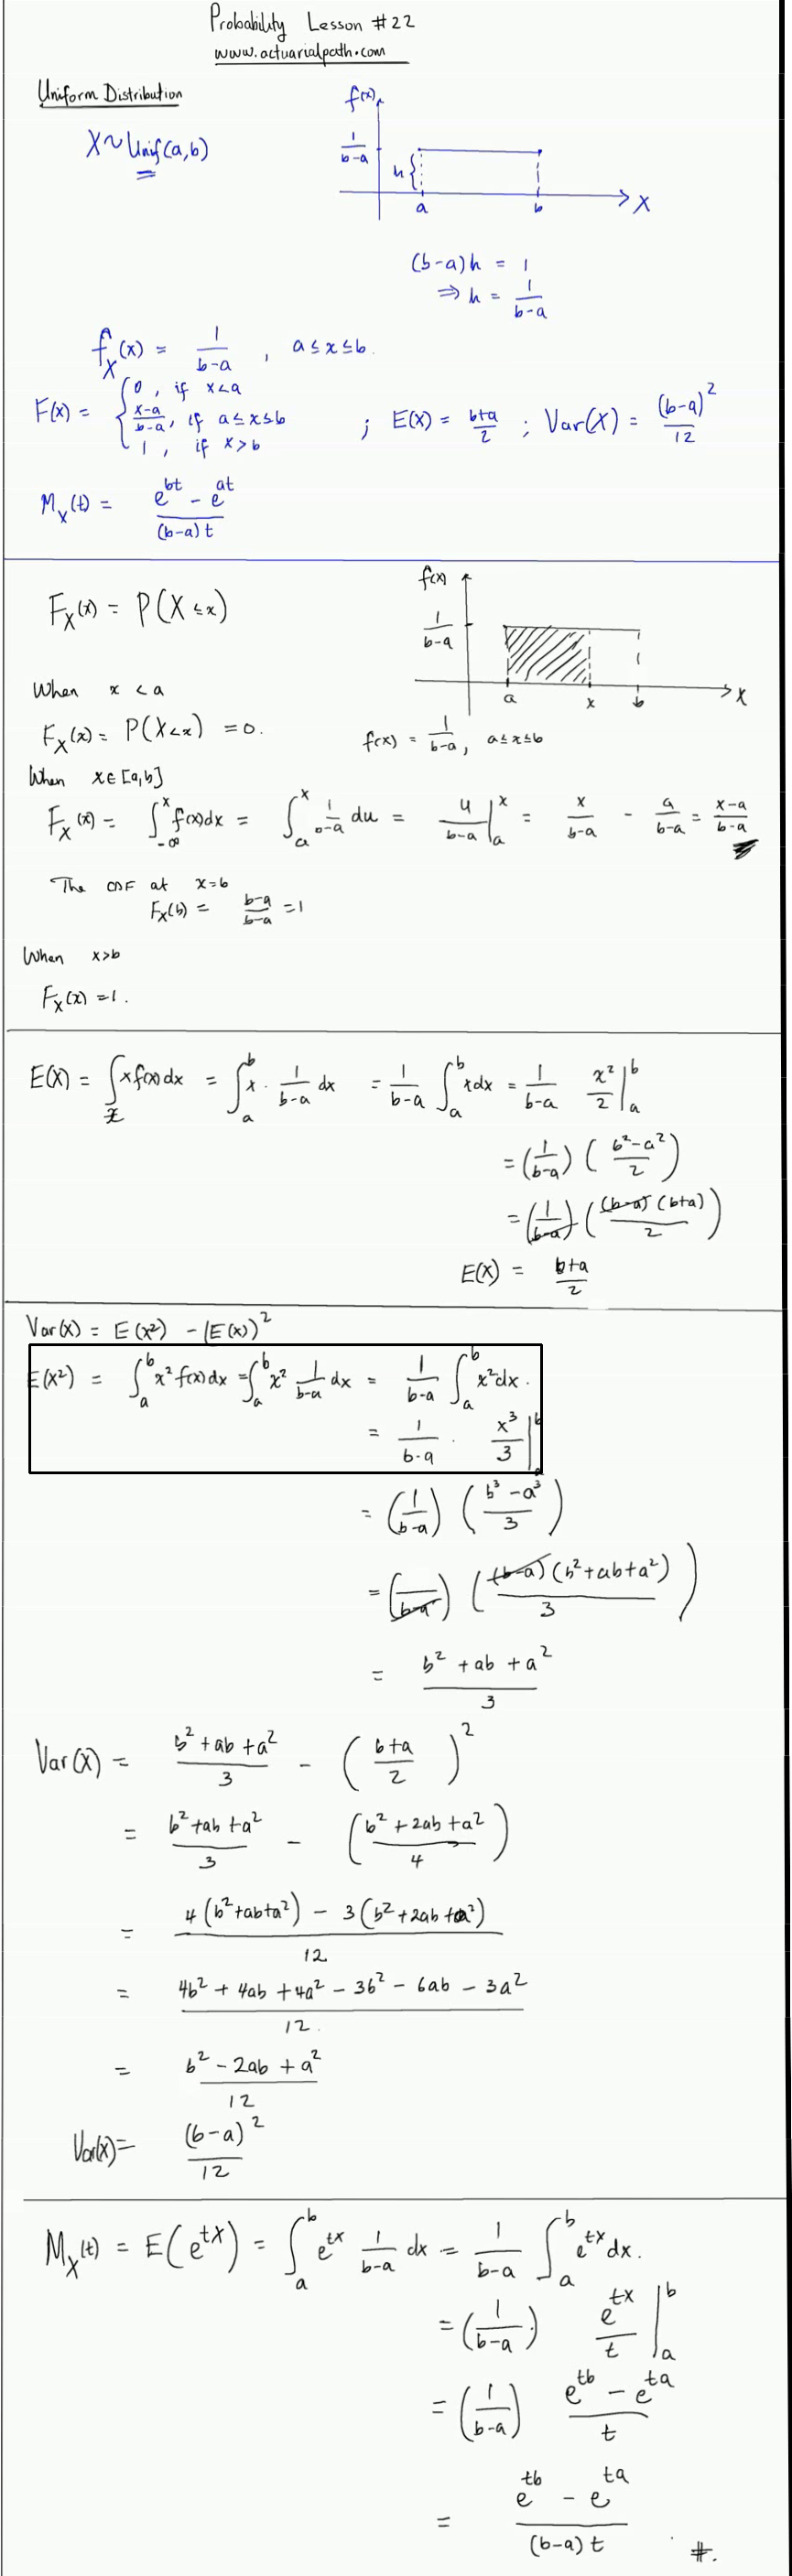 Probability Lesson #22
www.actuarialpath.com
Uniform Distribution
X~Unif(a,b)
f(x)
1/(b-a)
h{
a b X
(b-a)h = 1
⇒ h = 1/(b-a)
f_X(x) = 1/(b-a) , a≤x≤b.
F(x) = { 0, if x<a
(x-a)/(b-a), if a≤x≤b ; E(X) = (b+a)/2 ; Var(X) = (b-a)²/12
1, if x>b
M_X(t) = (e^bt - e^at)/((b-a)t)
F_X(x) = P(X≤x)
f(x)
1/(b-a)
a x b X
When x<a
F_X(x) = P(X<x) = 0.
f(x) = 1/(b-a), a≤x≤b
When x∈[a,b]
F_X(x) = ∫_{-∞}^{x} f(x)dx = ∫_a^x 1/(b-a) du = u/(b-a) |_a^x = x/(b-a) - a/(b-a) = (x-a)/(b-a)
The CDF at x=b
F_X(b) = (b-a)/(b-a) = 1
When x>b
F_X(x) = 1.
E(X) = ∫_x xf(x)dx = ∫_a^b x · 1/(b-a) dx = 1/(b-a) ∫_a^b xdx = 1/(b-a) x²/2 |_a^b
= (1/(b-a)) ((b²-a²)/2)
= (1/(b-a)) ((b-a)(b+a)/2)
E(X) = (b+a)/2
Var(X) = E(X²) - (E(X))²
E(X²) = ∫_a^b x² f(x)dx = ∫_a^b x² 1/(b-a) dx = 1/(b-a) ∫_a^b x²dx.
= 1/(b-a) · x³/3 |_a^b
= (1/(b-a)) ((b³-a³)/3)
= (1/(b-a)) ((b-a)(b²+ab+a²)/3)
= (b²+ab+a²)/3
Var(X) = (b²+ab+a²)/3 - ((b+a)/2)²
= (b²+ab+a²)/3 - ((b²+2ab+a²)/4)
= (4(b²+ab+a²) - 3(b²+2ab+a²))/12
= (4b²+4ab+4a²-3b²-6ab-3a²)/12.
= (b²-2ab+a²)/12
Var(X) = (b-a)²/12
M_X(t) = E(e^tX) = ∫_a^b e^tx 1/(b-a) dx = 1/(b-a) ∫_a^b e^tx dx.
= (1/(b-a)) e^tx/t |_a^b
= (1/(b-a)) (e^tb - e^ta)/t
= (e^tb - e^ta)/((b-a)t) #.